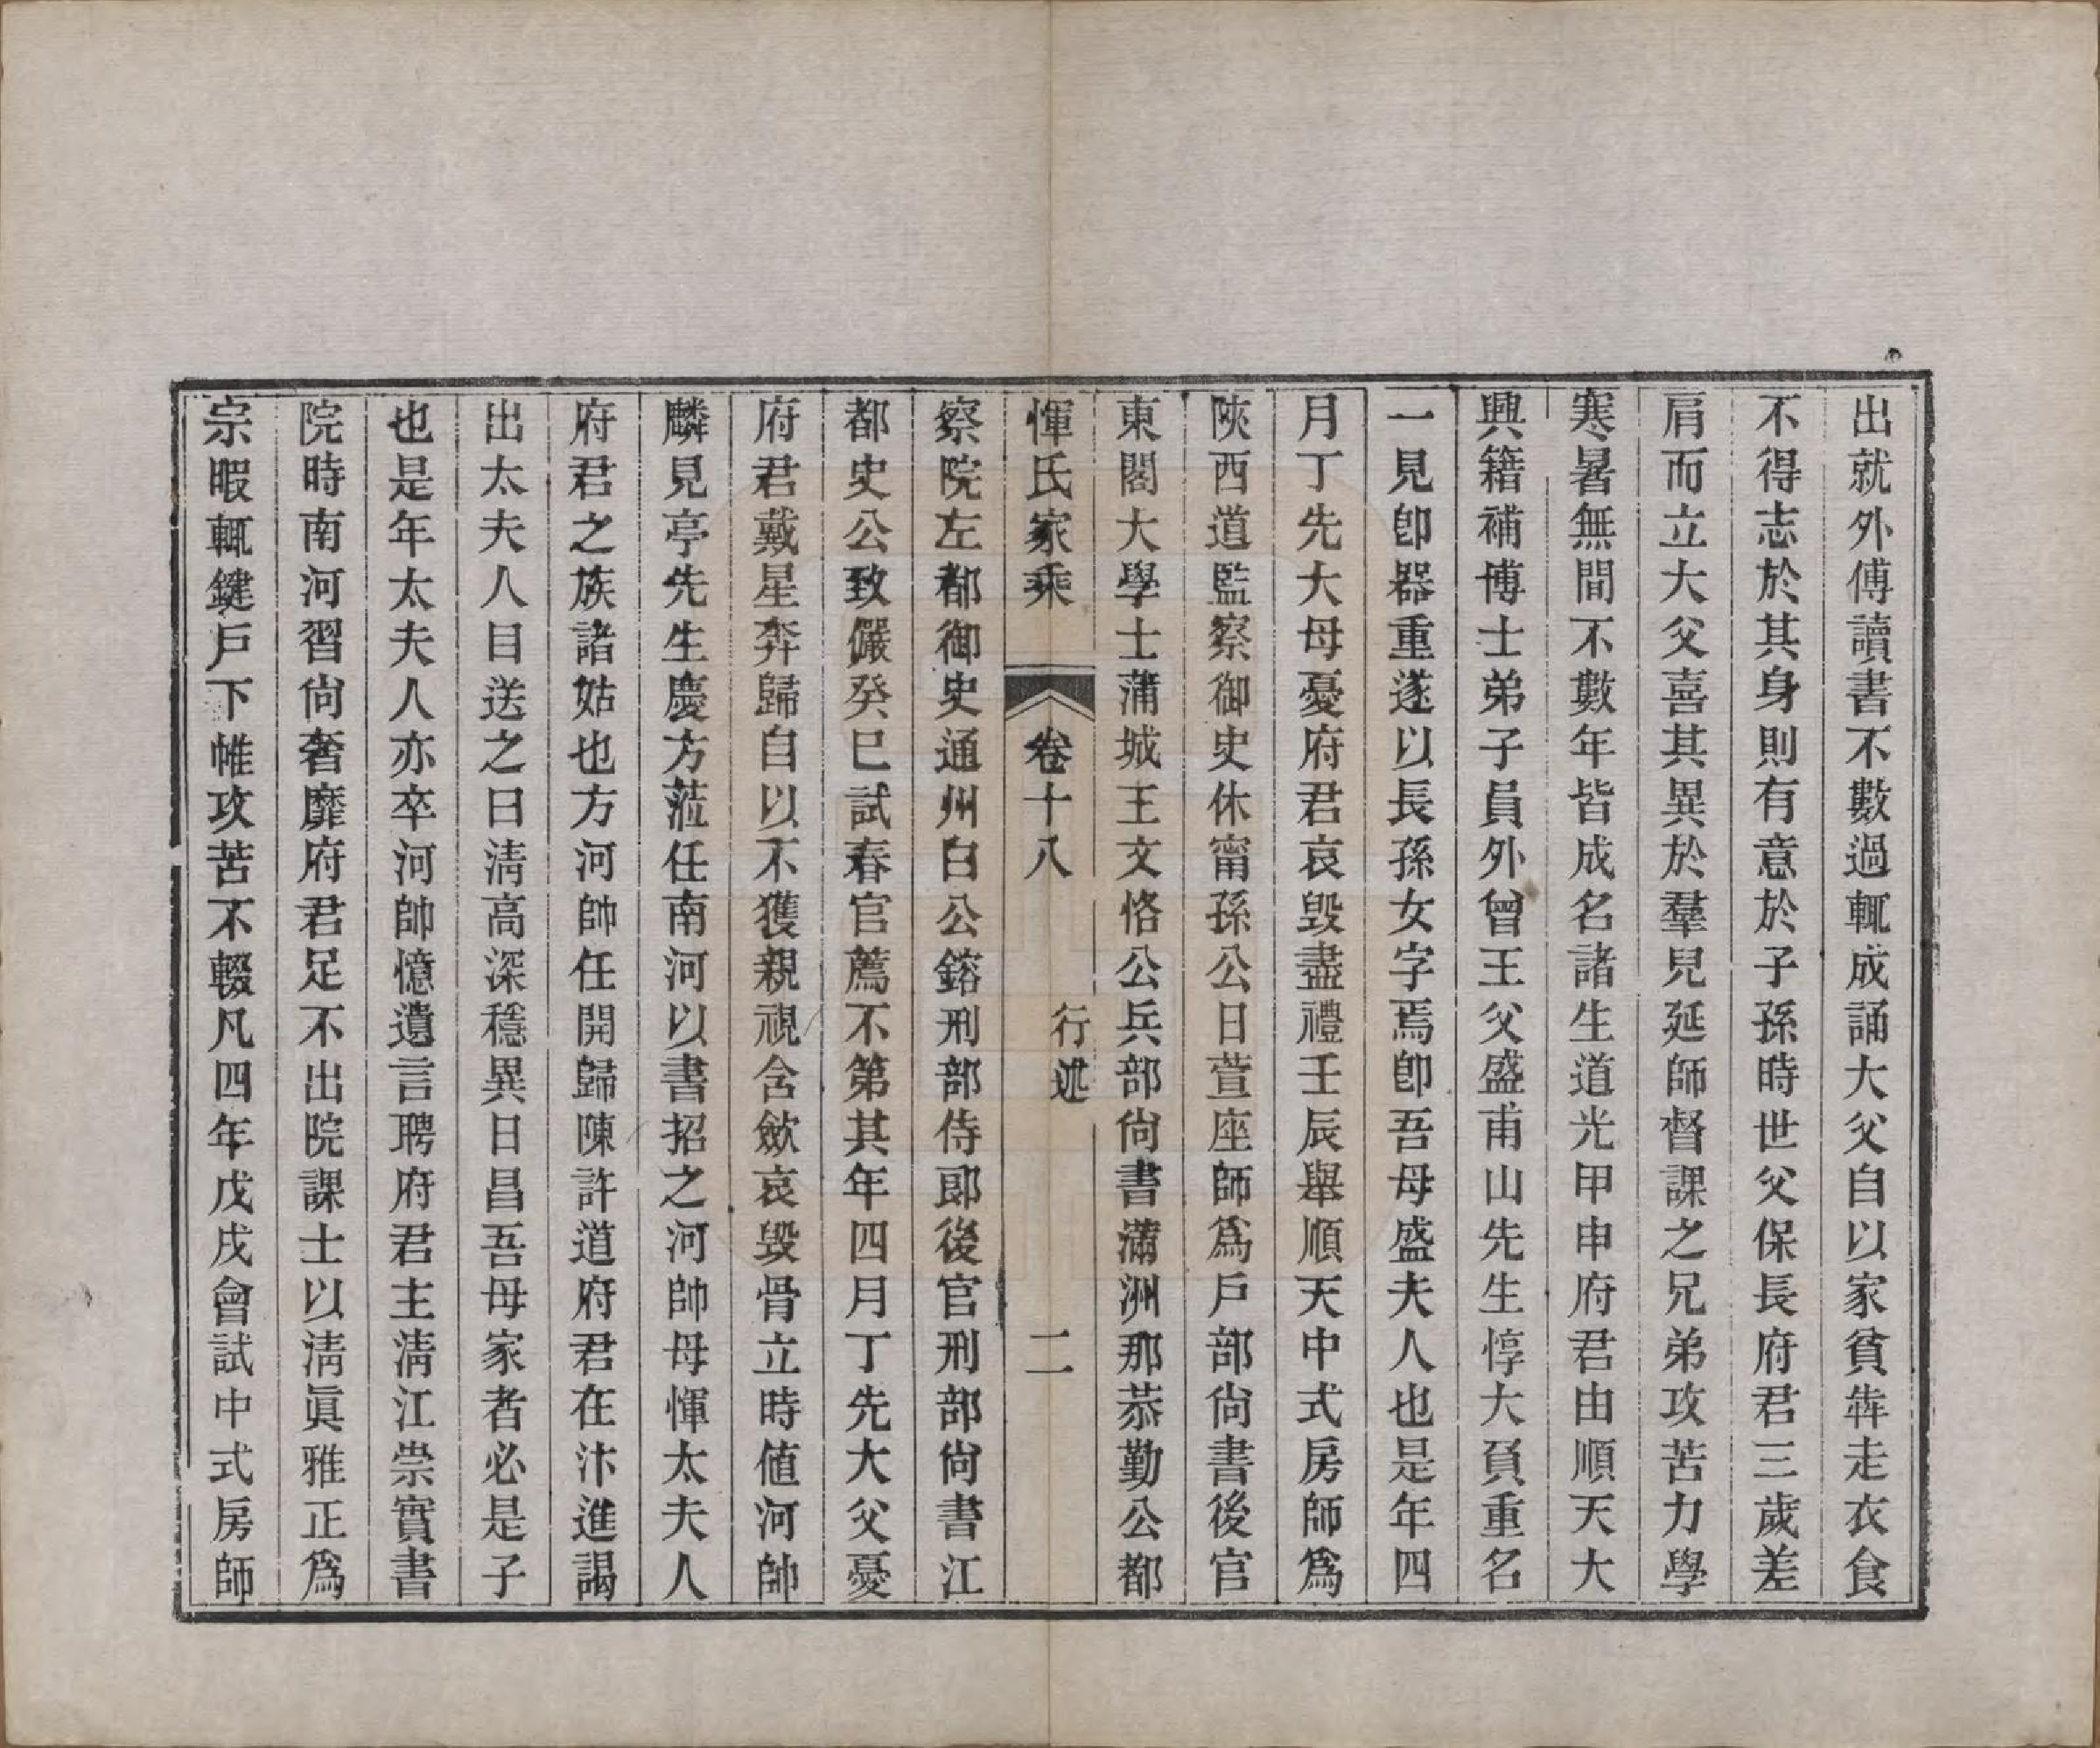 出就外傅讀書不數過輒成誦大父自以家貧犇走衣食
不得志於其身則有意於子孫時世父保長府君三歲差
肩而立大父喜其異於羣兒延師督課之兄弟攻苦力學
寒暑無間不數年皆成名諸生道光甲申府君由順天大
興籍補博士弟子員外曾王父盛甫山先生惇大負重名
一見卽器重遂以長孫女字焉卽吾母盛夫人也是年四
月丁先大母憂府君哀毀盡禮壬辰舉順天中式房師爲
陝西道監察御史休甯孫公日萱座師爲戶部尙書後官
東閣大學士蒲城王文恪公兵部尙書滿洲那恭勤公都
惲氏家乘 卷十八 行述 二
察院左都御史通州白公鎔刑部侍郞後官刑部尙書江
都史公致儼癸巳試春官薦不第其年四月丁先大父憂
府君戴星奔歸自以不獲親視含斂哀毀骨立時値河帥
麟見亭先生慶方蒞任南河以書招之河帥母惲太夫人
府君之族諸姑也方河帥任開歸陳許道府君在汴進謁
出太夫人目送之曰淸高深穩異日昌吾母家者必是子
也是年太夫人亦卒河帥憶遺言聘府君主淸江崇實書
院時南河習尙奢靡府君足不出院課士以淸眞雅正爲
宗暇輒鍵戶下帷攻苦不輟凡四年戊戌會試中式房師